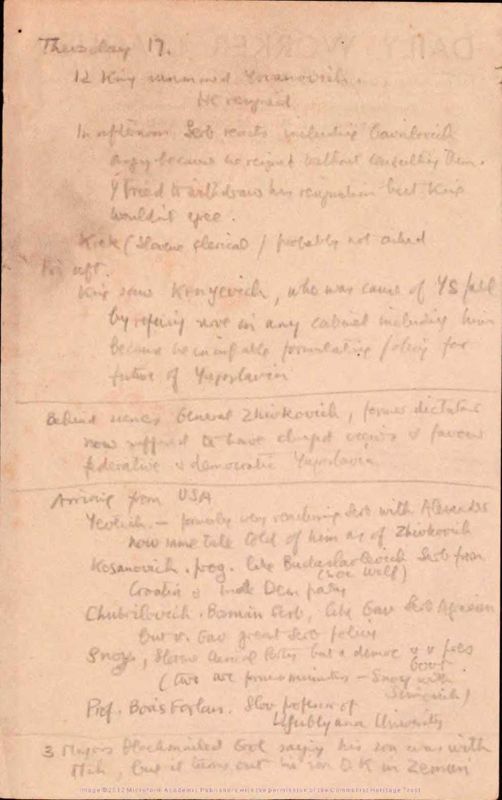 Thursday 17.
12 King summoned Yovanovich.
He resigned
In afternoon Serb reacts including Gavrilovich
angry because he resigned without consulting them.
Y tried to withdraw his resignation but King
wouldn't agree.
Krek (Slovene clerical) probably not asked
Fri aft.
King saw Krnyevich, who was cause of YS fall
by refusing serve in any cabinet including him
because he incapable formulating policy for
future of Yugoslavia
Behind scenes General Zhivkovich, former dictator
now supposed to have changed views & favours
federative & democratic Yugoslavia
Arriving from USA
Yevtich. — formerly very reactionary Serb with Alexander
now same tale told of him as of Zhivkovich
Kosanovich. prog. like Budisavlevich Serb from
(see Wilf)
Croatia & Indep Dem party
Chubrilovich. Bosnian Serb, like Gav Serb Agrarian
but v. Gav great Serb policy
Snoj, Slovene Clerical Party but a democ & v pres
Govt
(two are former ministers — Snoj with
Simovich)
Prof. Boris Furlan. Slov professor of
Lyublyana University
3 Majors blackmailed Govt saying his son was with
Mih, but it turns out his son O.K in Zemun
Image ©2012 Microform Academic Publishers with the permission of the Communist Heritage Trust